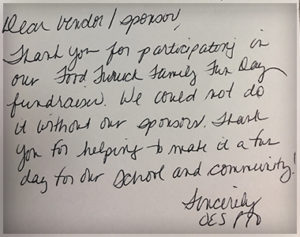 Dear Vendor / Sponsor,
Thank you for participating in
our Food Truck Family Fun Day
fundraiser. We could not do
it without our sponsors. Thank
you for helping to make it a fun
day for our school and community!
Sincerely
OES PTO